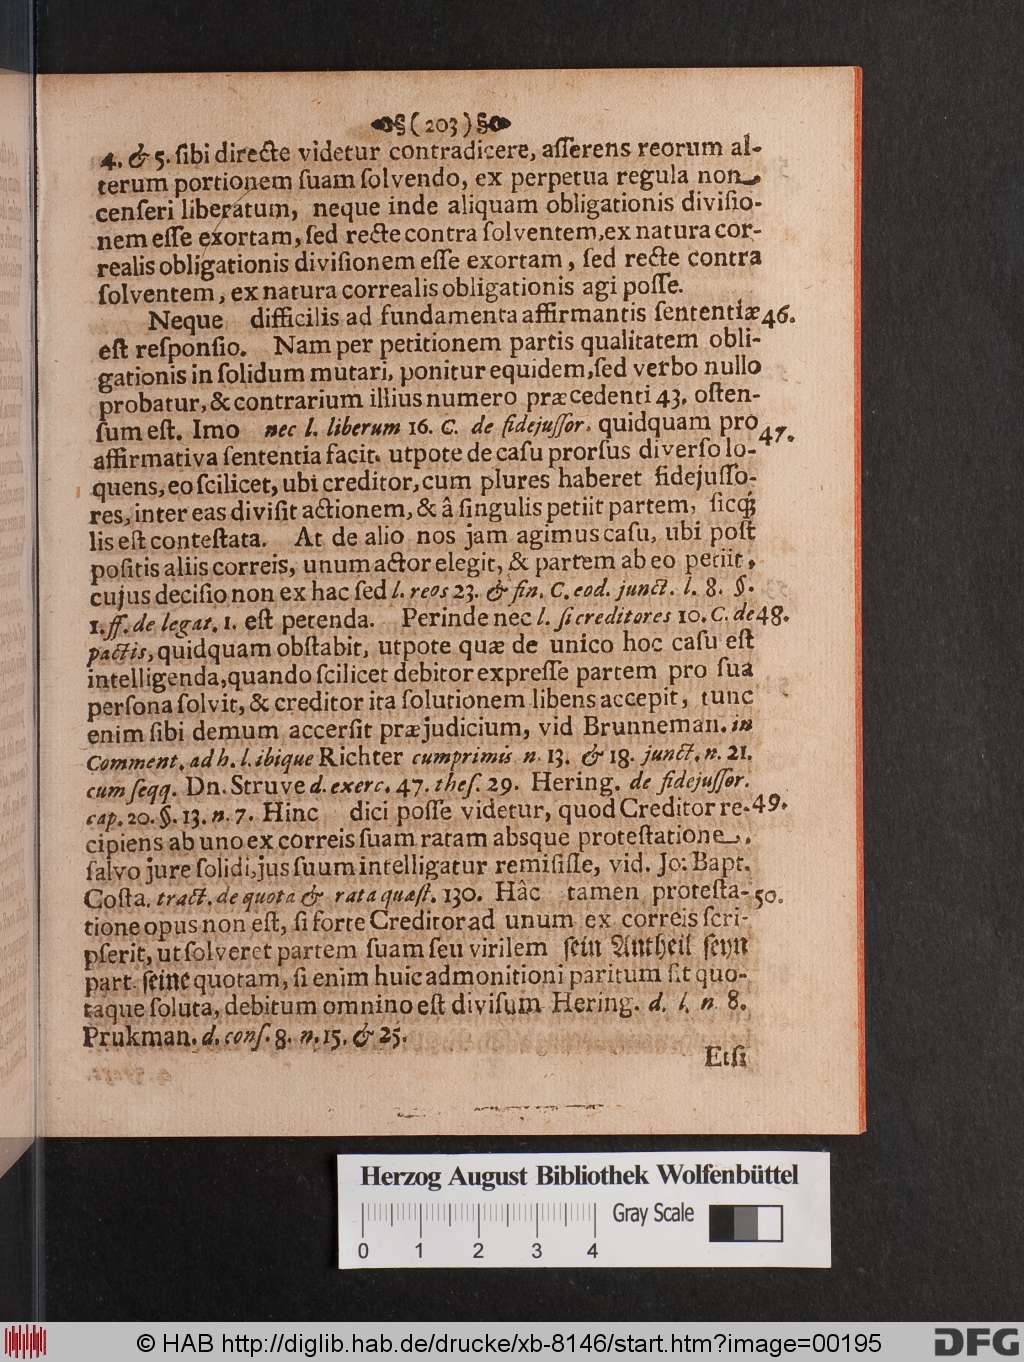 (203)
4. & 5. ſibi directe videtur contradicere, aſſerens reorum al-
terum portionem ſuam ſolvendo, ex perpetua regula non
cenſeri liberatum, neque inde aliquam obligationis diviſio-
nem eſſe exortam, ſed recte contra ſolventem, ex natura cor-
realis obligationis diviſionem eſſe exortam, ſed recte contra
ſolventem, ex natura correalis obligationis agi poſſe.
Neque difficilis ad fundamenta affirmantis ſententiæ 46.
eſt reſponſio. Nam per petitionem partis qualitatem obli-
gationis in ſolidum mutari, ponitur equidem, ſed verbo nullo
probatur, & contrarium illius numero præcedenti 43. oſten-
ſum eſt. Imo nec l. liberum 16. C. de fidejuſſor. quidquam pro 47.
affirmativa ſententia facit. utpote de caſu prorſus diverſo lo-
quens, eo ſcilicet, ubi creditor, cum plures haberet fidejuſſo-
res, inter eas diviſit actionem, & â ſingulis petiit partem, ſicq;
lis eſt conteſtata. At de alio nos jam agimus caſu, ubi poſt
poſitis aliis correis, unum actor elegit, & partem ab eo petiit,
cujus deciſio non ex hac ſed l. reos 23. & fin. C. eod. junct. l. 8. §.
1. ff. de legat. 1. eſt petenda. Perinde nec l. ſi creditores 10. C. de 48.
pactis, quidquam obſtabit, utpote quæ de unico hoc caſu eſt
intelligenda, quando ſcilicet debitor expreſſe partem pro ſua
perſona ſolvit, & creditor ita ſolutionem libens accepit, tunc
enim ſibi demum accerſit præjudicium, vid Brunneman. in
Comment. ad h. l. ibique Richter cumprimis n. 13. & 18. junct. n. 21.
cum ſeqq. Dn. Struve d. exerc. 47. theſ. 29. Hering. de fidejuſſor.
cap. 20. §. 13. n. 7. Hinc dici poſſe videtur, quod Creditor re- 49.
cipiens ab uno ex correis ſuam ratam absque proteſtatione,
ſalvo jure ſolidi, jus ſuum intelligatur remiſiſſe, vid. Jo: Bapt.
Coſta. tract. de quota & rata quæſt. 130. Hâc tamen proteſta- 50.
tione opus non eſt, ſi forte Creditor ad unum ex correis ſcri-
pſerit, ut ſolveret partem ſuam ſeu virilem ſein Antheil ſeyn
part. ſeine quotam, ſi enim huic admonitioni paritum ſit quo-
taque ſoluta, debitum omnino eſt diviſum Hering. d. l. n. 8.
Prukman. d. conſ. 8. n. 15. & 25.
Etſi
Herzog August Bibliothek Wolfenbüttel
Gray Scale
0 1 2 3 4
© HAB http://diglib.hab.de/drucke/xb-8146/start.htm?image=00195
DFG